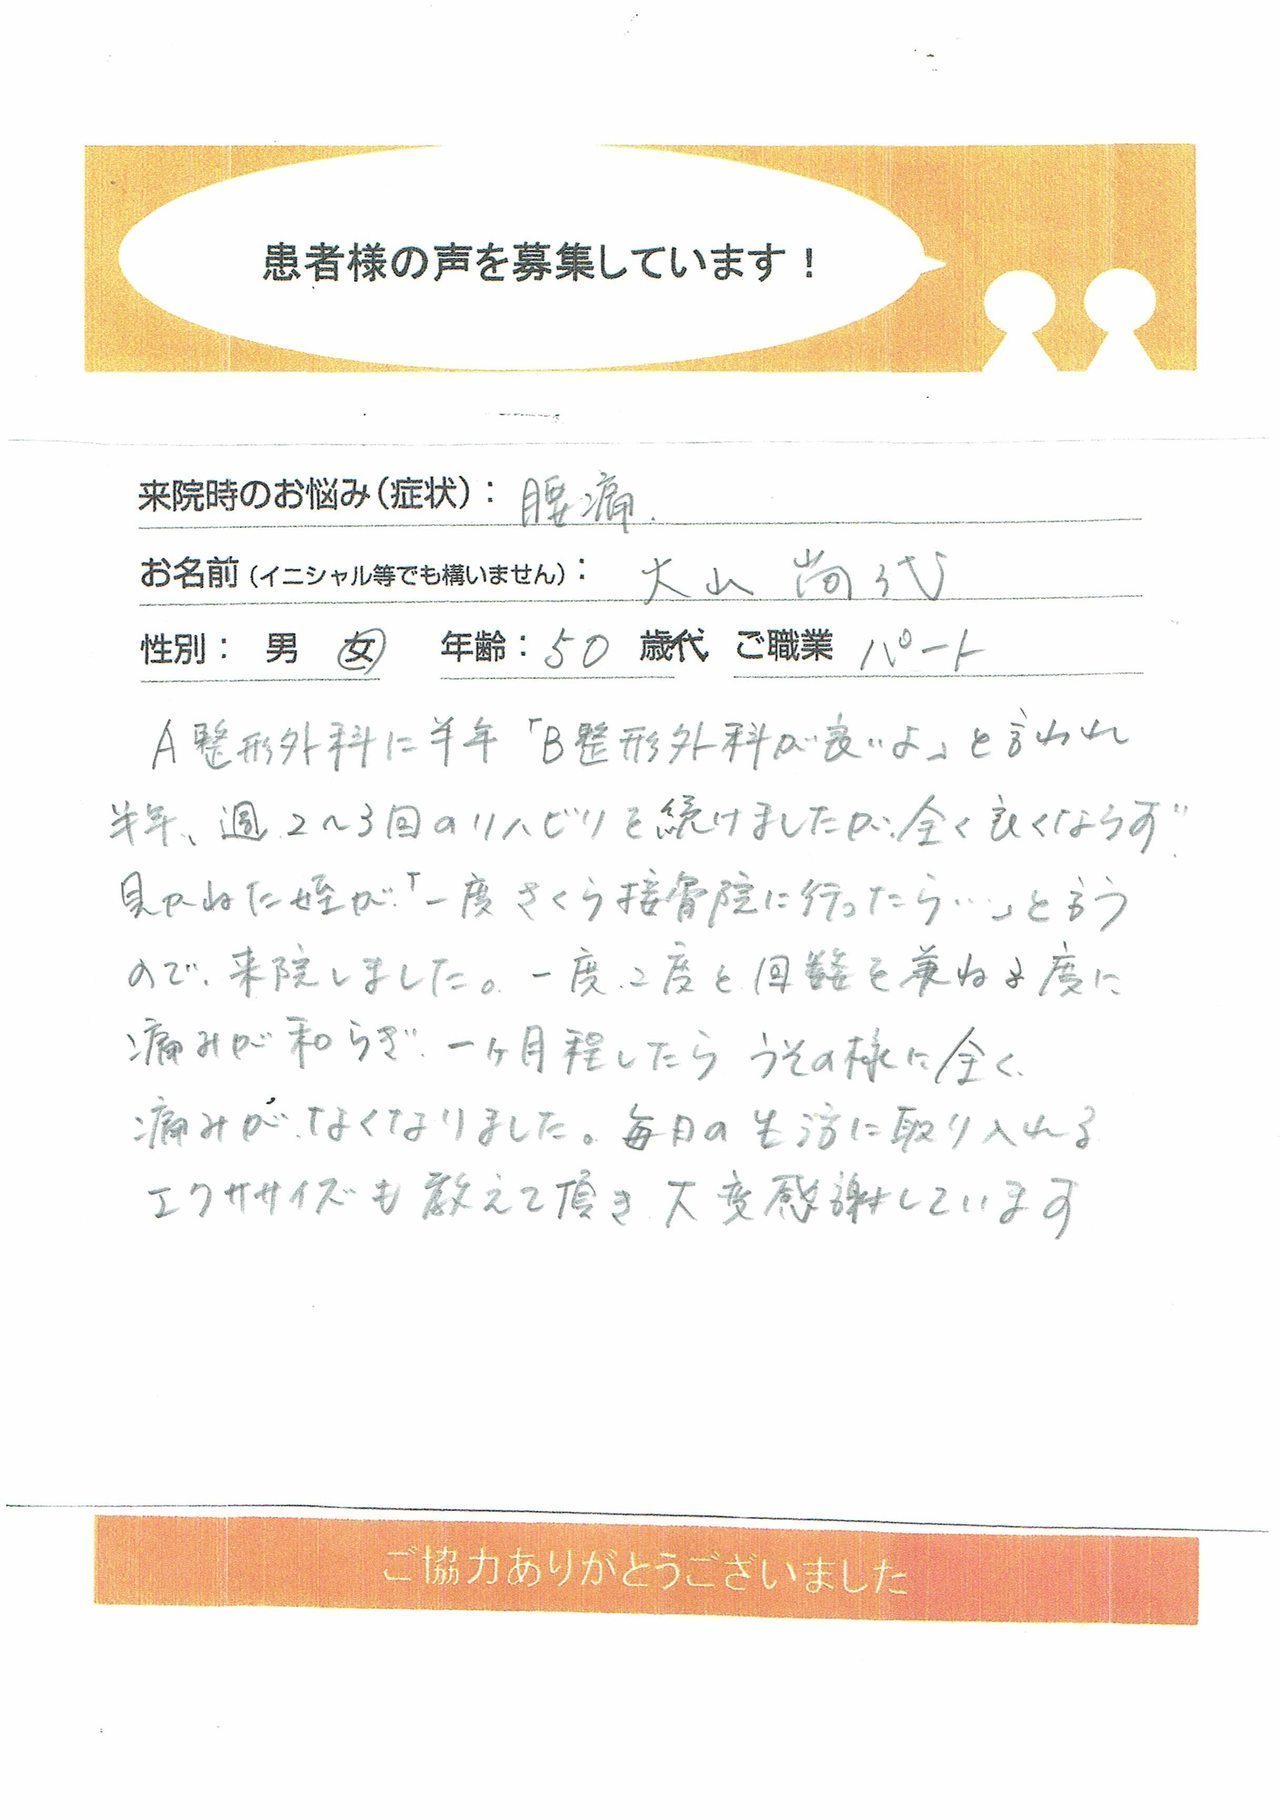 患者様の声を募集しています！
来院時のお悩み（症状）： 腰痛.
お名前（イニシャル等でも構いません）： 大山 尚代
性別： 男 女 年齢：50 歳代 ご職業 パート
A整形外科に半年「B整形外科が良いよ」と言われ
半年、週2〜3回のリハビリを続けましたが、全く良くならず、
見かねた姪が、「一度さくら接骨院に行ったら…」と言う
ので、来院しました。一度、2度と、回数を兼ねる度に
痛みが和らぎ、一ヶ月程したら うその様に全く、
痛みが、なくなりました。毎日の生活に取り入れる
エクササイズも教えて頂き、大変感謝しています
ご協力ありがとうございました